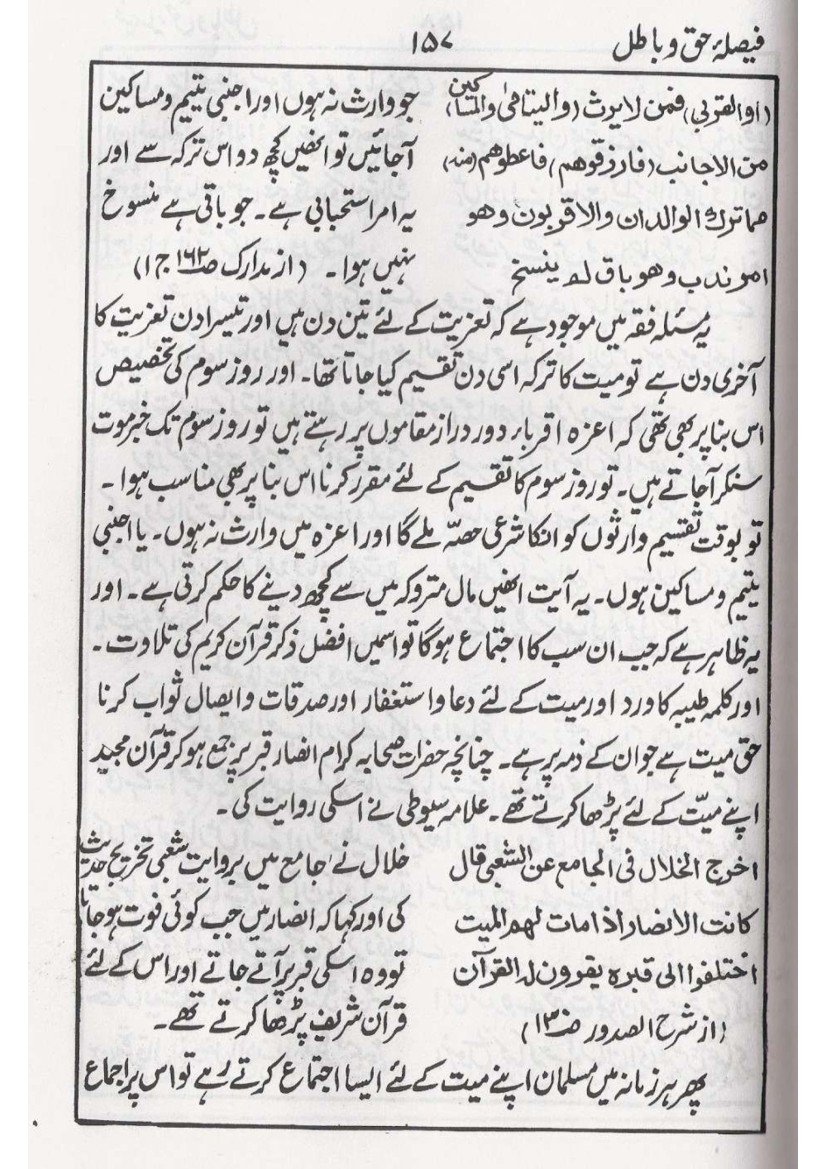 فیصلۂ حق و باطل ۱۵۷
(اوالقربی) فمن لایرث (والیتامیٰ والمساکین)
من الاجانب (فارزقوھم) فاعطوھم (منہ)
مماترك الوالدان والاقربون وھو
امرندب وھو باق لم ینسخ
جو وارث نہ ہوں اور اجنبی یتیم و مساکین
آجائیں تو انھیں کچھ دو اس ترکہ سے اور
یہ امر استحبابی ہے۔ جو باقی ہے منسوخ
نہیں ہوا۔ (از مدارک صـ۱۶۲ ج۱)
یہ مسئلہ فقہ میں موجود ہے کہ تعزیت کے لئے تین دن ہیں اور تیسرا دن تعزیت کا
آخری دن ہے تو میت کا ترکہ اسی دن تقسیم کیا جاتا تھا۔ اور روز سوم کی تخصیص
اس بنا پر بھی تھی کہ اعزہ اقرباء دور دراز مقاموں پر رہتے ہیں تو روز سوم تک خبر موت
سنکر آجاتے ہیں۔ تو روز سوم کا تقسیم کے لئے مقرر کرنا اس بنا پر بھی مناسب ہوا۔
تو بوقت تقسیم وارثوں کو انکا شرعی حصہ ملے گا اور اعزہ میں وارث نہ ہوں۔ یا اجنبی
یتیم و مساکین ہوں۔ یہ آیت انھیں مال متروکہ میں سے کچھ دینے کا حکم کرتی ہے۔ اور
یہ ظاہر ہے کہ جب ان سب کا اجتماع ہوگا تو اسمیں افضل ذکر قرآن کریم کی تلاوت۔
اور کلمہ طیبہ کا ورد اور میت کے لئے دعا و استغفار اور صدقات و ایصال ثواب کرنا
حق میت ہے جو ان کے ذمہ پر ہے۔ چنانچہ حضرات صحابہ کرام انصار قبر پر جمع ہو کر قرآن مجید
اپنے میّت کے لئے پڑھا کرتے تھے۔ علامہ سیوطی نے اسکی روایت کی۔
اخرج الخلال فی الجامع عن الشعبی قال
کانت الانصار اذا مات لھم المیت
اختلفوا الی قبرہ یقرون لہ القرآن
(از شرح الصدور صـ۱۳)
خلال نے جامع میں بروایت شعبی تخریج حدیث
کی اور کہا کہ انصار میں جب کوئی فوت ہو جاتا
تو وہ اسکی قبر پر آتے جاتے اور اس کے لئے
قرآن شریف پڑھا کرتے تھے۔
پھر ہر زمانہ میں مسلمان اپنے میت کے لئے ایسا اجتماع کرتے رہے تو اس پر اجماع